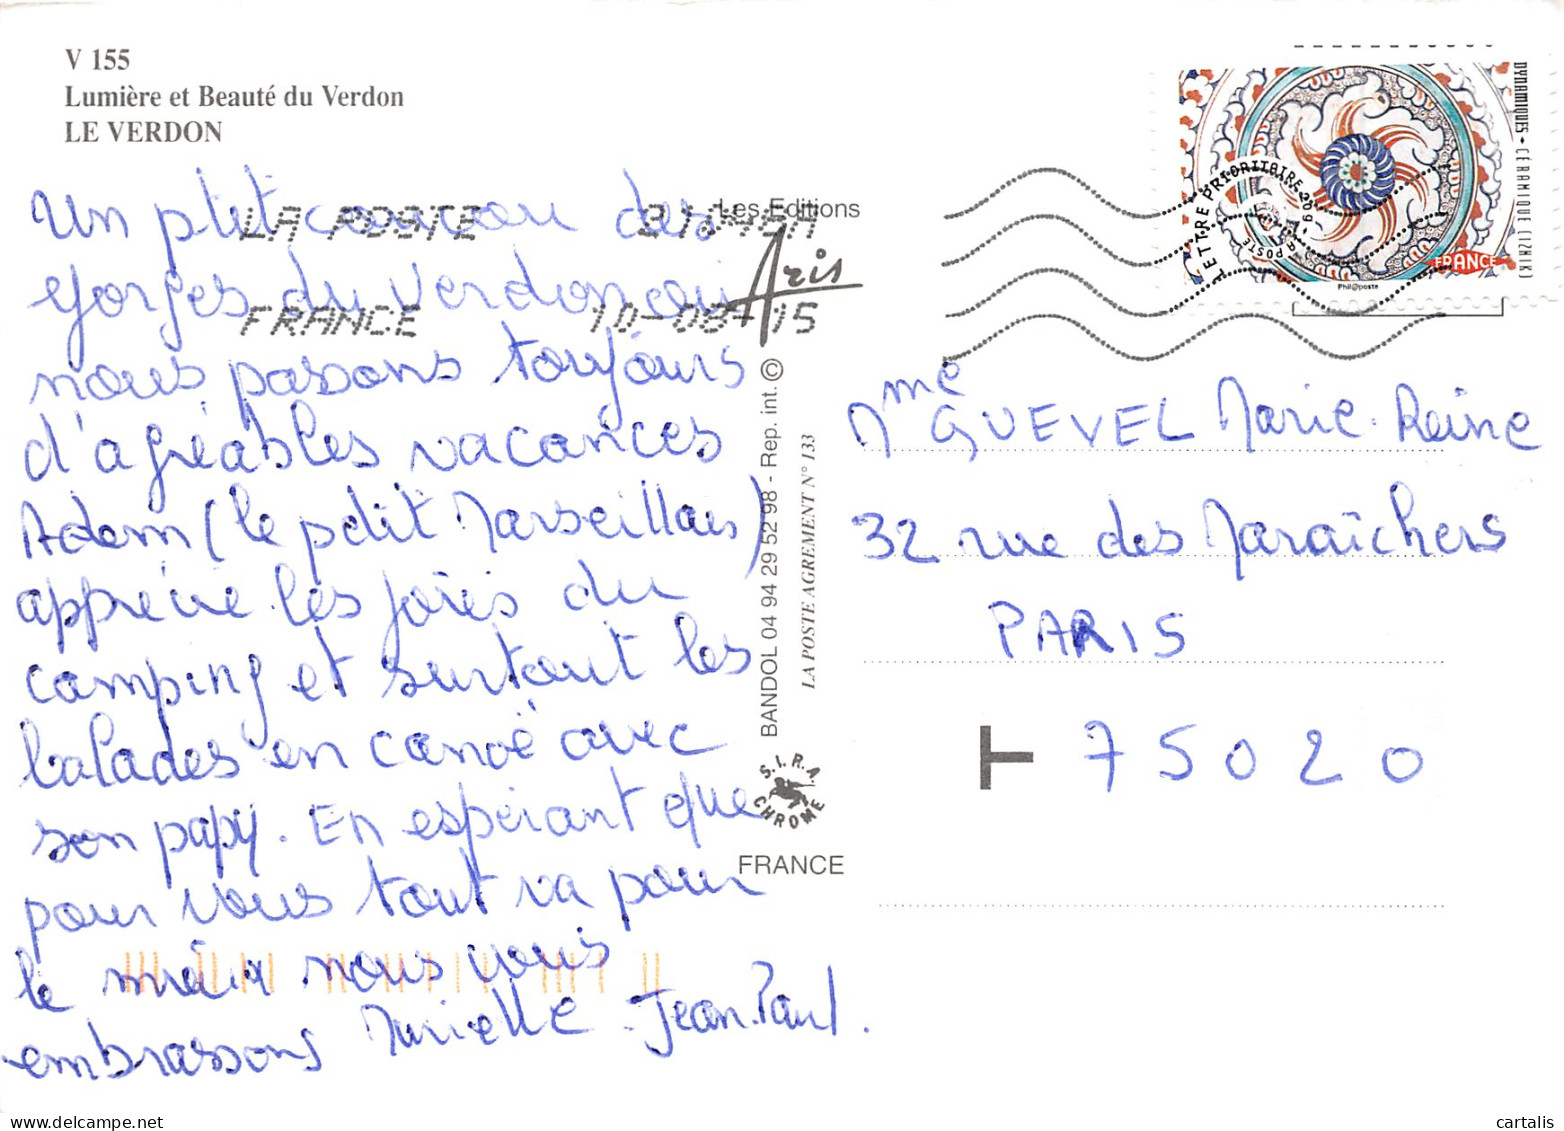 V 155
Lumière et Beauté du Verdon
LE VERDON
Un ptit coucou des
gorges du Verdon où
nous passons toujours
d'agréables vacances
Adem (le petit Marseillais)
apprécie les joies du
camping et surtout les
balades en canoë avec
son papy. En espérant que
pour vous tout va pour
le mieux nous vous
embrassons Murielle - Jean-Paul.
LA POSTE
FRANCE 10-08-15
Les Editions
Aris
BANDOL 04 94 29 52 98 - Rep. int. ©
LA POSTE AGREMENT N° 133
S.I.R.A.
CHROME
FRANCE
LETTRE PRIORITAIRE 20g
LA POSTE
FRANCE
Phil@poste
DYNAMIQUES - CÉRAMIQUE (IZNIK)
Mme GUEVEL Marie-Reine
32 rue des Maraîchers
PARIS
T 75020
cartalis